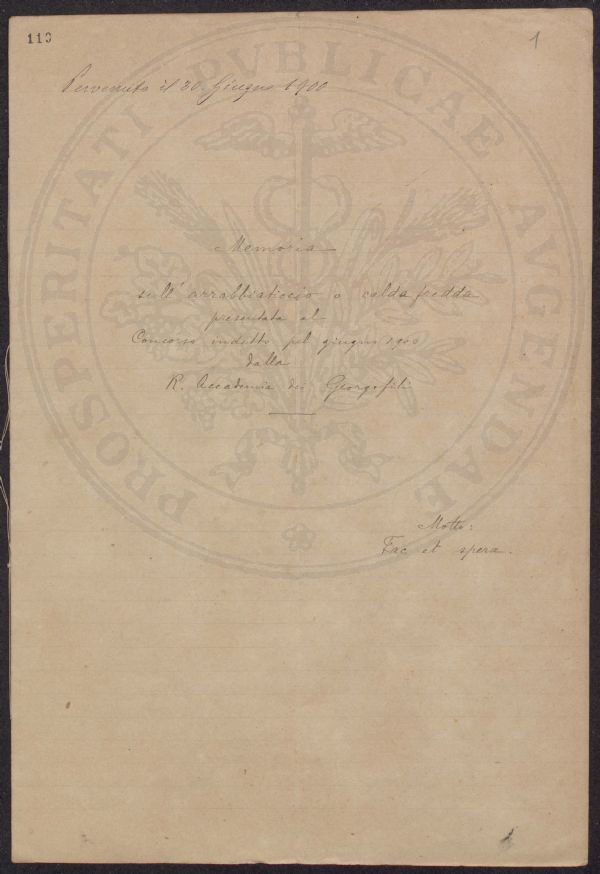 113
1
Pervenuta il 30 Giugno 1900
PROSPERITATI PVBLICAE AVGENDAE
Memoria
sull' arrabbiaticcio o caldafredda
presentata al
Concorso indetto pel giugno 1900
dalla
R. Accademia dei Georgofili
Motto:
Fac et spera.